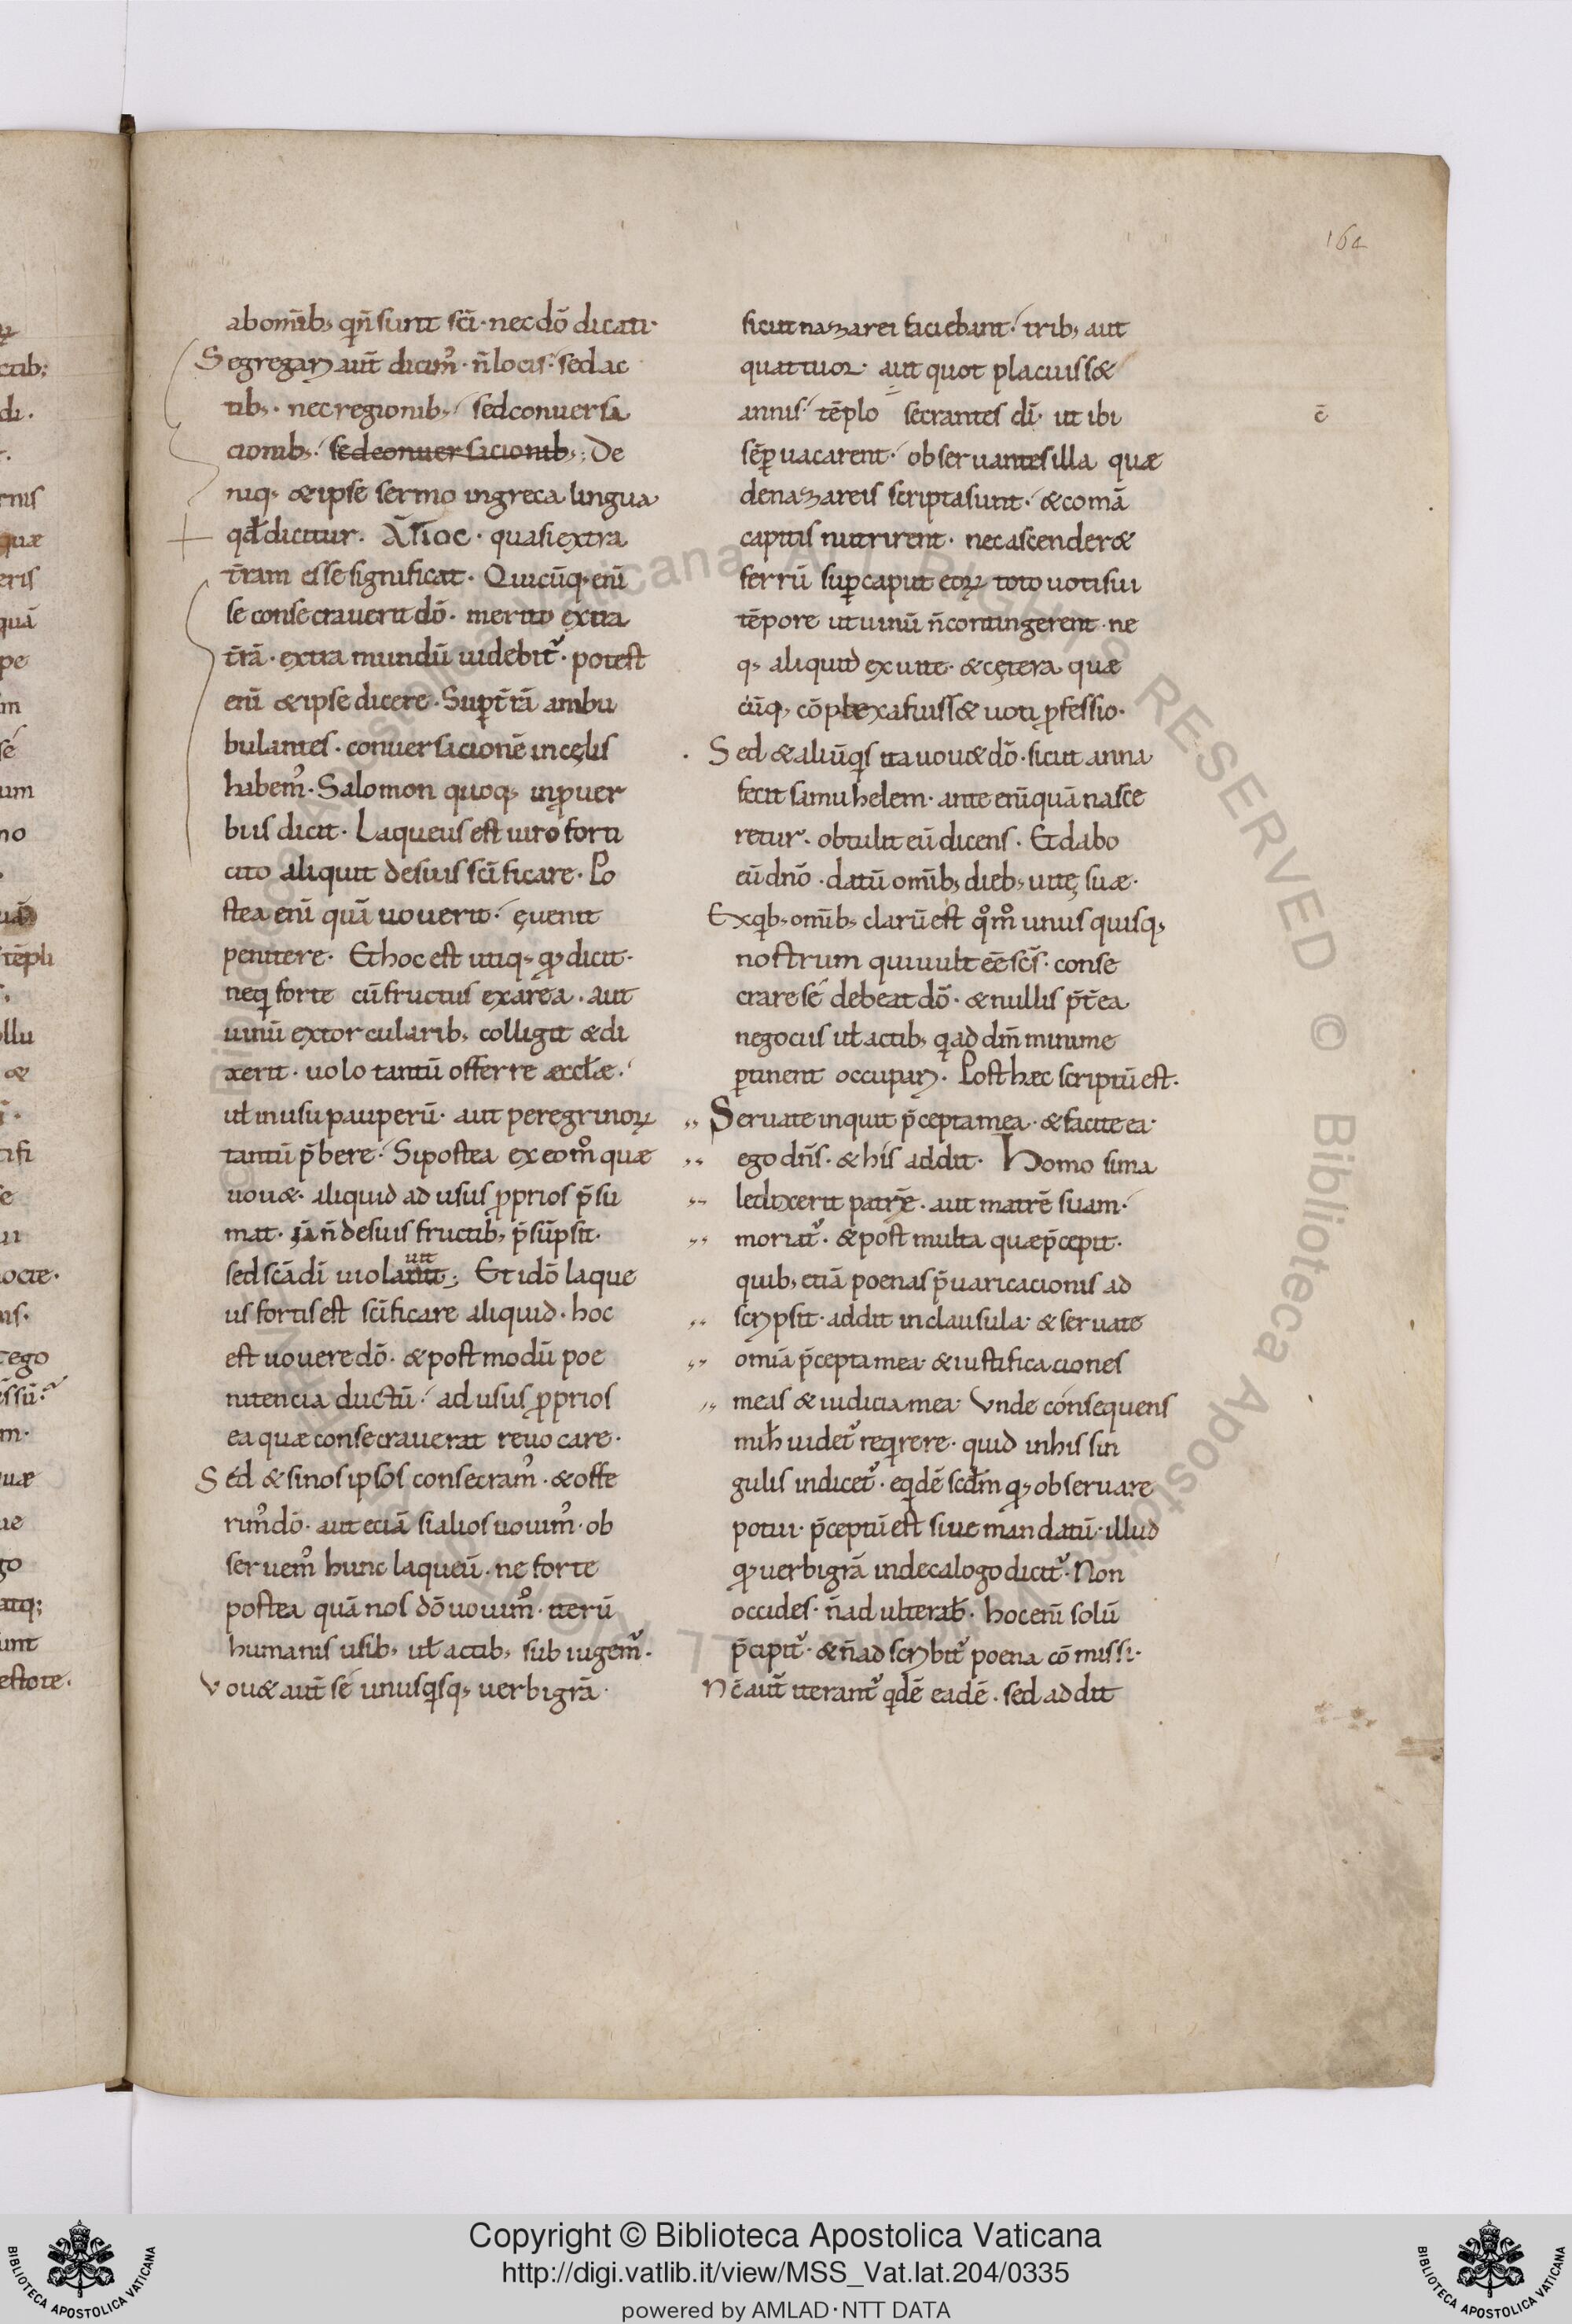 164
abom̄ib; qn̄ sunt sc̄i · nec dō dicati ·
Segregari aut̄ dicim᾽ · n̄ locis · sed ac
tib; · nec regionib; sed conuersa
cionib; · sed conuersacionib; · De
niq; & ipse sermo in greca lingua
qđ dicitur · ἅγιος · quasi extra
t̄ram esse significat · Quicūq; enī
se consecrauerit dō · merito extra
t̄rā · extra mundū uidebit᾽ · potest
enī & ipse dicere · Sup t̄rā ambu
bulantes · conuersacionē in cęlis
habem᾽ · Salomon quoq; in puer
biis dicit · Laqueus est uiro forti
cito aliquit de suis sc̄ificare · Po
stea enī quā uouerit · ęuenit
penitere · Et hoc est utiq; qd dicit ·
neq forte cū fructus ex area · aut
uinū ex torcularib; colligit & di
xerit · uolo tantū offerre æccłæ ·
uł in usu pauperū · aut peregrinoꝝ
tantū p̄bere · Si postea ex eom° quæ
uou& · aliquid ad usus pprios p̄su
mat · iā n̄ de suis fructib; p̄sūpsit ·
sed sc̄a dī uiolauit · Et idō laque
us fortis est sc̄ificare aliquid · hoc
est uouere dō · & post modū poe
nitencia ductū · ad usus pprios
ea quæ consecrauerat reuocare ·
Sed & si nos ipsos consecram᾽ · & offe
rim᾽ dō · aut eciā si alios uouim᾽ · ob
seruem᾽ hunc laqueū · ne forte
postea quā nos dō uouim᾽ · iterū
humanis usib; uł actib; subiugem᾽ ·
Vou& aut̄ se unusqsq; uerbi grā ·
sicut nazarei faciebant · trib; aut
quattuor · aut quot placuiss&
annis · tēplo secrantes dī · ut ibi
c̄
sēp uacarent · obseruantes illa quæ
de nazareis scripta sunt · & comā
capitis nutrirent · nec ascender&
ferrū sup caput eoꝝ toto uoti sui
tēpore ut uinū n̄ contingerent · ne
q; aliquid ex uite · & cętera quæ
cūq; cōplexa fuiss& uoti pfessio ·
Sed & aliū qs ita uou& dō · sicut anna
fecit samuhelem · ante enī quā nasce
retur · obtulit eū dicens · Et dabo
eū dn̄o · datū om̄ib; dieb; uitę suæ ·
Ex qb; om̄ib; clarū est qm° unusquisq;
nostrum qui uult eē sc̄s · conse
crare se debeat dō · & nullis p̄t̄ea
negociis uł actib; q ad dm̄ minime
ptinent occupari · Post hæc scriptū est ·
Seruate inquit p̄cepta mea · & facite ea ·
ego dn̄s · & his addit · Homo si ma
ledixerit patrē · aut matrē suam ·
moriat᾽ · & post multa quæ p̄cepit ·
quib; etiā poenas p̄uaricacionis ad
scripsit · addit in clausula · & seruate
omia p̄cepta mea · & iustificaciones
meas & iudicia mea · Vnde consequens
mih uidet᾽ reqrere · quid in his sin
gulis indicet᾽ · eqdē scđm qd obseruare
potui · p̄ceptū est siue mandatū · illud
qd uerbi grā in decalogo dicit᾽ · Non
occides · n̄ adulterab · hoc enī solū
p̄cipit᾽ · & n̄ adscribit᾽ poena cōmissi ·
Nc̄ aut̄ iterant᾽ qdē eadē · sed addit
Copyright © Biblioteca Apostolica Vaticana
http://digi.vatlib.it/view/MSS_Vat.lat.204/0335
powered by AMLAD·NTT DATA
BIBLIOTECA APOSTOLICA VATICANA
BIBLIOTECA APOSTOLICA VATICANA